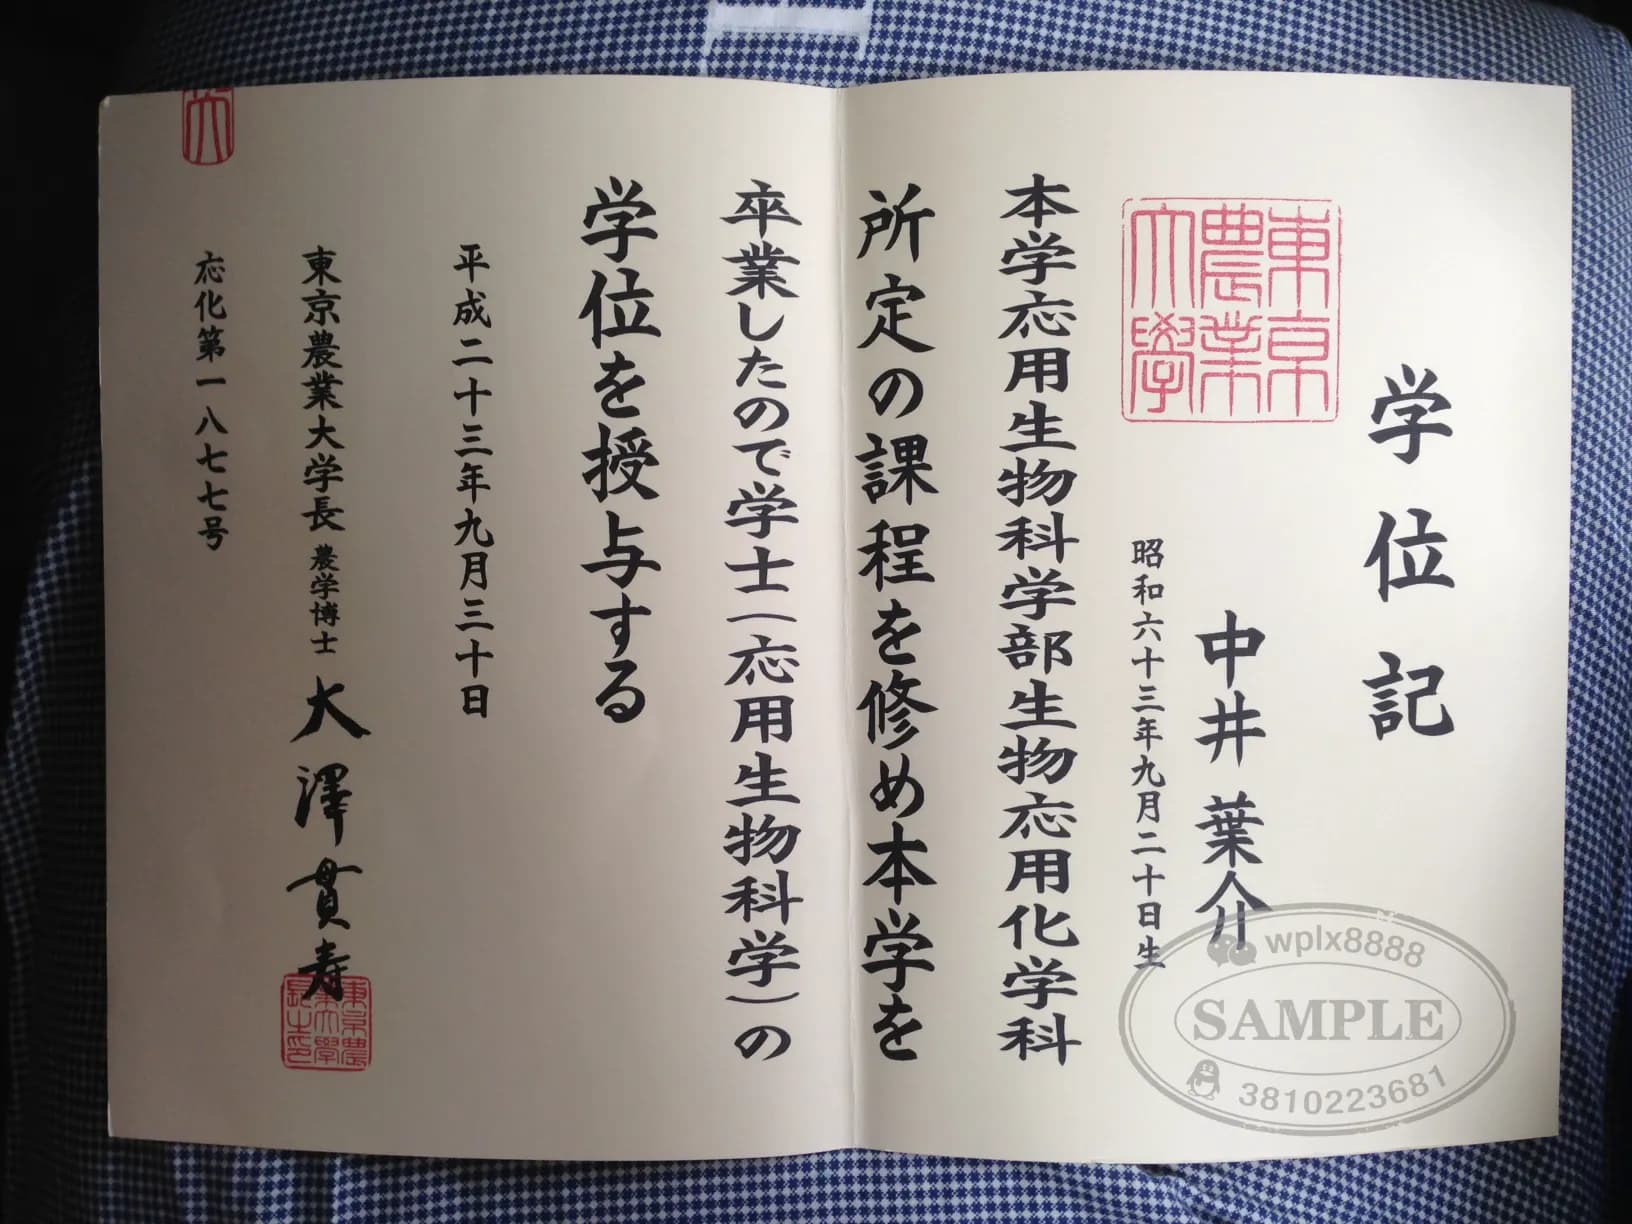 学位記
東京
農業
大學
中井葉介
昭和六十三年九月二十日生
本学応用生物科学部生物応用化学科
所定の課程を修め本学を
卒業したので学士(応用生物科学)の
学位を授与する
平成二十三年九月三十日
東京農業大学長 農学博士 大澤貫寿
東京農
業大學
長之印
応化第一八七七号
wplx8888
SAMPLE
3810223681